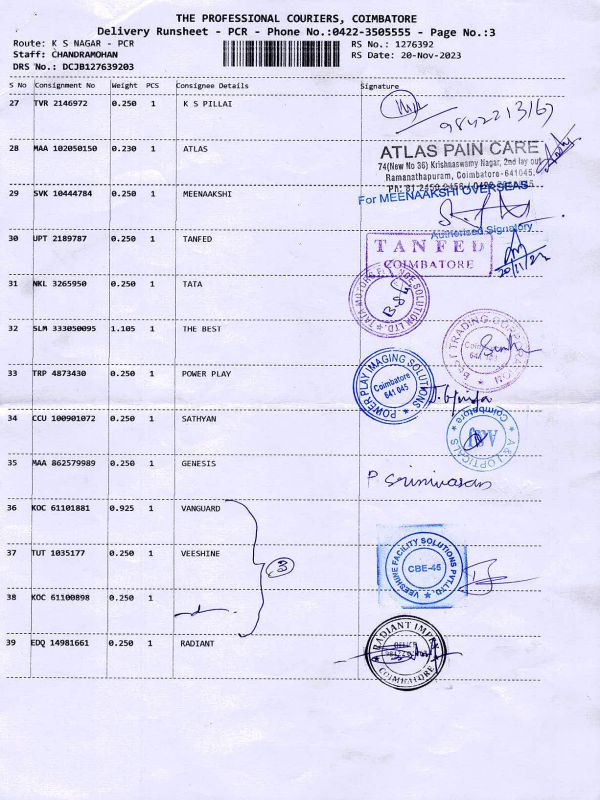 THE PROFESSIONAL COURIERS, COIMBATORE
Delivery Runsheet - PCR - Phone No.:0422-3505555 - Page No.:3
Route: K S NAGAR - PCR
RS No.: 1276392
Staff: CHANDRAMOHAN
RS Date: 20-Nov-2023
DRS No.: DCJB127639203
S No Consignment No Weight PCS Consignee Details Signature
27 TVR 2146972 0.250 1 K S PILLAI
9842213167
28 MAA 102050150 0.230 1 ATLAS
ATLAS PAIN CARE
74(New No 36) Krishnaswamy Nagar, 2nd lay out
Ramanathapuram, Coimbatore-641045.
29 SVK 10444784 0.250 1 MEENAAKSHI
For MEENAAKSHI OVERSEAS
Authorised Signatory
30 UPT 2189787 0.250 1 TANFED
TANFED
COIMBATORE
20/11/23
31 NKL 3265950 0.250 1 TATA
32 SLM 333050095 1.105 1 THE BEST
TRADING CORPORATION
Coimbatore
33 TRP 4873430 0.250 1 POWER PLAY
POWER PLAY IMAGING SOLUTIONS
Coimbatore
641 045
34 CCU 100901072 0.250 1 SATHYAN
OPTICALS
Coimbatore
35 MAA 862579989 0.250 1 GENESIS
P Srinivasan
36 KOC 61101881 0.925 1 VANGUARD
37 TUT 1035177 0.250 1 VEESHINE
3
VEESHINE FACILITY SOLUTIONS PVT LTD
CBE-45
38 KOC 61100898 0.250 1
39 EDQ 14981661 0.250 1 RADIANT
RADIANT IMPEX
COIMBATORE